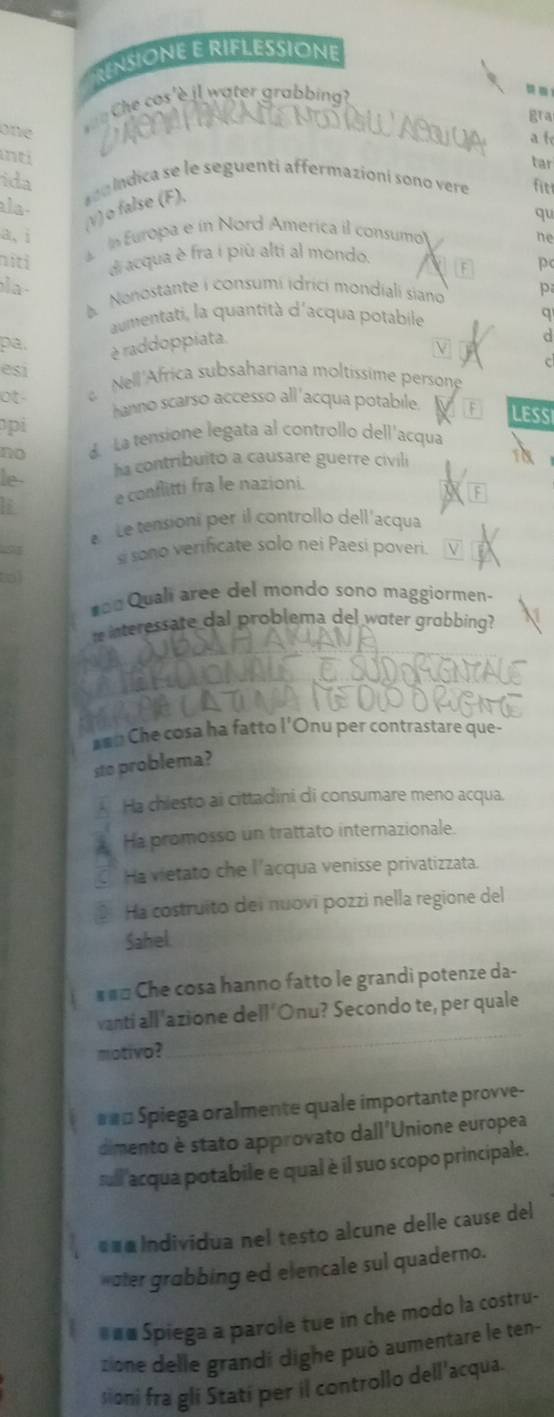 RENSIONE E RIFLESSIONE
Che cos'è il water grabbing?
L'ACCAPARRAMENTO DELL'ACQUA
Indica se le seguenti affermazioni sono vere
(V) o false (F).
a. In Europa e in Nord America il consumo
di acqua è fra i più alti al mondo. F
b. Nonostante i consumi idrici mondiali siano
aumentati, la quantità d'acqua potabile
è raddoppiata. V F
c. Nell'Africa subsahariana moltissime persone
hanno scarso accesso all'acqua potabile. V F
d. La tensione legata al controllo dell'acqua
ha contribuito a causare guerre civili
e conflitti fra le nazioni. V F
e. Le tensioni per il controllo dell'acqua
si sono verificate solo nei Paesi poveri. V F
Quali aree del mondo sono maggiormen-
te interessate dal problema del water grabbing?
SUBSAHARIANA
MERIDIONALE E SUDORIENTALE
LATINA MEDIO ORIENTE
Che cosa ha fatto l'Onu per contrastare que-
sto problema?
A Ha chiesto ai cittadini di consumare meno acqua.
Ha promosso un trattato internazionale.
C Ha vietato che l'acqua venisse privatizzata.
D Ha costruito dei nuovi pozzi nella regione del
Sahel.
Che cosa hanno fatto le grandi potenze da-
vanti all'azione dell'Onu? Secondo te, per quale
motivo?
Spiega oralmente quale importante provve-
dimento è stato approvato dall'Unione europea
sull'acqua potabile e qual è il suo scopo principale.
Individua nel testo alcune delle cause del
water grabbing ed elencale sul quaderno.
Spiega a parole tue in che modo la costru-
zione delle grandi dighe può aumentare le ten-
sioni fra gli Stati per il controllo dell'acqua.
one
anti
ida
ala-
a, i
niti
pa.
esi
ot-
opi
no
le-
li.
gra
tar
fit
qu
ne
LESS
10
11